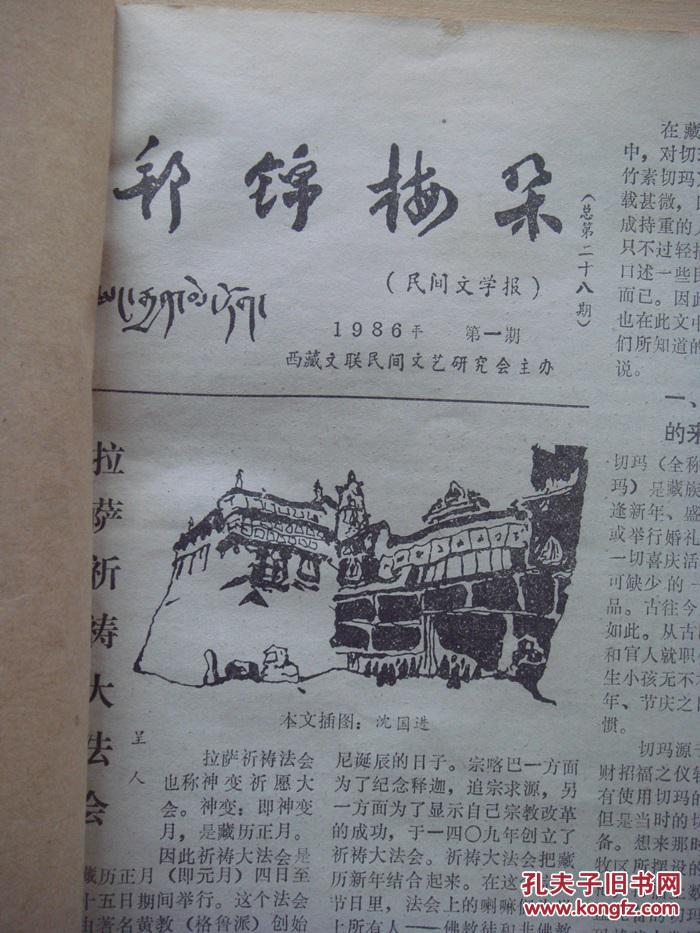 邦锦梅朵
(总第二十八期)
(民间文学报)
1986年 第一期
西藏文联民间文艺研究会主办
拉萨祈祷大法会
呈人
本文插图：沈国进
拉萨祈祷法会
也称神变祈愿大
会。神变：即神变
月，是藏历正月。
因此祈祷大法会是
藏历正月（即元月）四日至
十五日期间举行。这个法会
由著名黄教（格鲁派）创始
尼诞辰的日子。宗喀巴一方面
为了纪念释迦，追宗求源，另
一方面为了显示自己宗教改革
的成功，于一四〇九年创立了
祈祷大法会。祈祷大法会把藏
历新年结合起来。在这
节日里，法会上的喇嘛
上所有人——佛教徒和非佛教
在藏
中，对切玛
竹素切玛
载甚微，
成持重的
只不过轻描
口述一些
而已。因此
也在此文中
们所知道的
说。
一、
的来
切玛（全称
玛）是藏族
逢新年、盛
或举行婚礼
一切喜庆活
可缺少的
品。古往今
如此。从古
和官人就职
生小孩无不
年、节庆之
惯。
切玛源于
财招福之仪轨
有使用切玛的
但是当时的切
备。想来那时
牧区所摆设的
孔夫子旧书网
www.kongfz.com